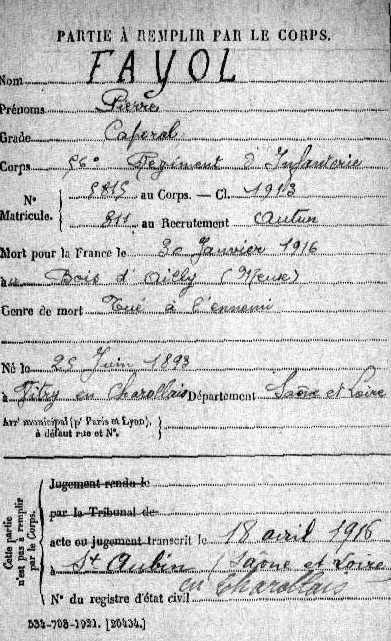 PARTIE À REMPLIR PAR LE CORPS.
FAYOL
Nom
Prénoms Pierre
Grade Caporal
Corps 56e Régiment d'Infanterie
N° Matricule. 5815 au Corps. — Cl. 1913
811 au Recrutement Autun
Mort pour la France le 30 Janvier 1916
à Bois d'Ailly (Meuse)
Genre de mort Tué à l'ennemi
Né le 25 Juin 1893
à Vitry en Charollais Département Saône et Loire
Arrt municipal (pr Paris et Lyon),
à défaut rue et N°.
Cette partie n'est pas à remplir par le Corps.
Jugement rendu le
par le Tribunal de
acte ou jugement transcrit le 18 avril 1916
à St Aubin (Saône et Loire
en Charollais
N° du registre d'état civil
534-708-1921. [26434.]